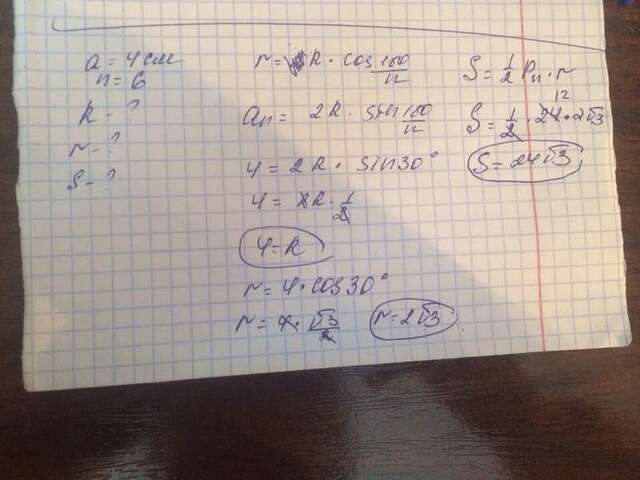 a = 4 см
n = 6
R - ?
r - ?
S - ?
r = R · cos 180/n
an = 2R · sin 180/n
4 = 2R · sin30°
4 = 2R · 1/2
4 = R
r = 4 · cos30°
r = 4 · √3/2
r = 2√3
S = 1/2 Pn · r
12
S = 1/2 · 24 · 2√3
S = 24√3